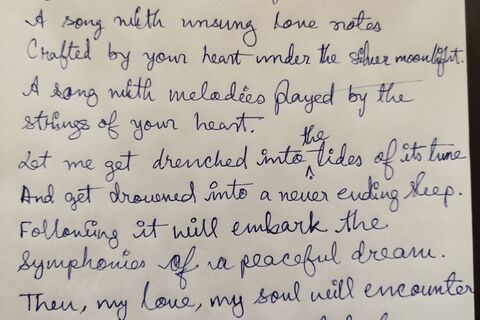 A song with unsung love notes
Crafted by your heart under the silver moonlight.
A song with melodies played by the
strings of your heart.
Let me get drenched into the tides of its tune
And get drowned into a never ending sleep.
Following it will embark the
Symphonies of a peaceful dream.
Then, my love, my soul will encounter